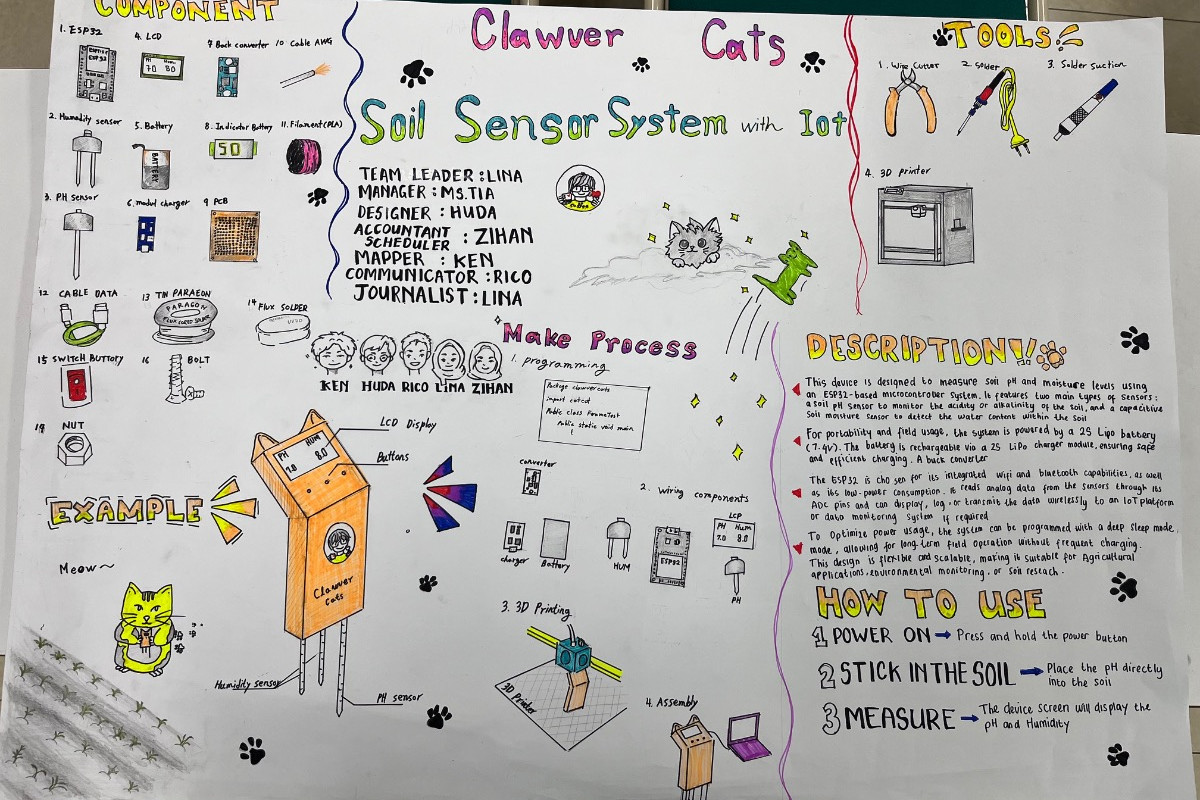 COMPONENT
1. ESP32
4. LCD
7 Back converter
10 Cable AWG
PH HUMD
70 80
2. Humadity sensor
5. Battery
8. Indicator Battery
11. Filament (PLA)
BATTERY
50
3. PH sensor
6. modul charger
9 PCB
12 CABLE DATA
13 TIN PARAEON
14 Flux SOLDER
PARAGON
FLUX CORED SOLDER
15 SWITCH BUTTORY
16 BOLT
NUT
Clawver Cats
Soil Sensor System with Iot
TEAM LEADER : LINA
MANAGER : MS.TIA
DESIGNER : HUDA
ACCOUNTANT
SCHEDULER : ZIHAN
MAPPER : KEN
COMMUNICATOR : RICO
JOURNALIST : LINA
KEN HUDA RICO LINA ZIHAN
TOOLS!
1. Wire Cutter
2. Solder
3. Solder Suction
4. 3D printer
EXAMPLE
Meow~
LCD Display
Buttons
PH HUM
7.0 8.0
Clawver
Cats
Humadity sensor
PH sensor
Make Process
1. programming
Package clawvercats
import catcat
Public class
Public static void main
2. wiring components
convertor
charger
Battery
HUM
ESP32
LCP
PH Hum
7.0 8.0
PH
3. 3D Printing
3D Printer
4. Assembly
DESCRIPTION!!
This device is designed to measure soil pH and moisture levels using
an ESP32-based microcontroller system. It features two main types of sensors:
a soil pH sensor to monitor the acidity or alkatinity of the soil, and a capacitive
soil moisture sensor to detect the water content within the soil
For portability and field usage, the system is powered by a 2S Lipo battery
(7.4V). The battery is rechargeable via a 2S LiPo charger module, ensuring safe
and efficient charging. A buck converter
The ESP32 is chosen for its integrated wifi and bluetooth capabilities, as well
as its low-power consumption. It reads analog data from the sensors through its
ADC pins and can display, log, or transmit the data wirelessly to an IoT platform
or data monitoring system if required
To Optimize power usage, the system can be programmed with a deep sleep mode
mode, allowing for long-term field operation without frequent charging.
This design is flexible and scalable, making it suitable for Agricultural
applications, environmental monitoring, or soil reseach.
HOW TO USE
1 POWER ON → Press and hold the power button
2 STICK IN THE SOIL → Place the pH directly
into the soil
3 MEASURE → The device screen will display the
pH and Humidity